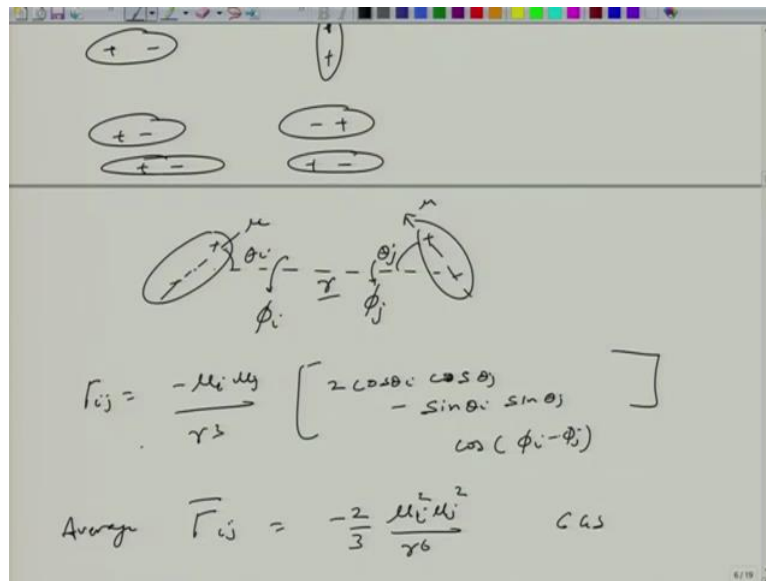 + -
+
+ - - +
+ - + -
μ μ
+ θi θj +
r
ϕi ϕj
Γij = -μi μj / r3 [ 2 cosθi cosθj
- sinθi sinθj
cos ( ϕi-ϕj) ]
Average Γij = -2/3 μi2 μj2 / r6 CGS
6/19